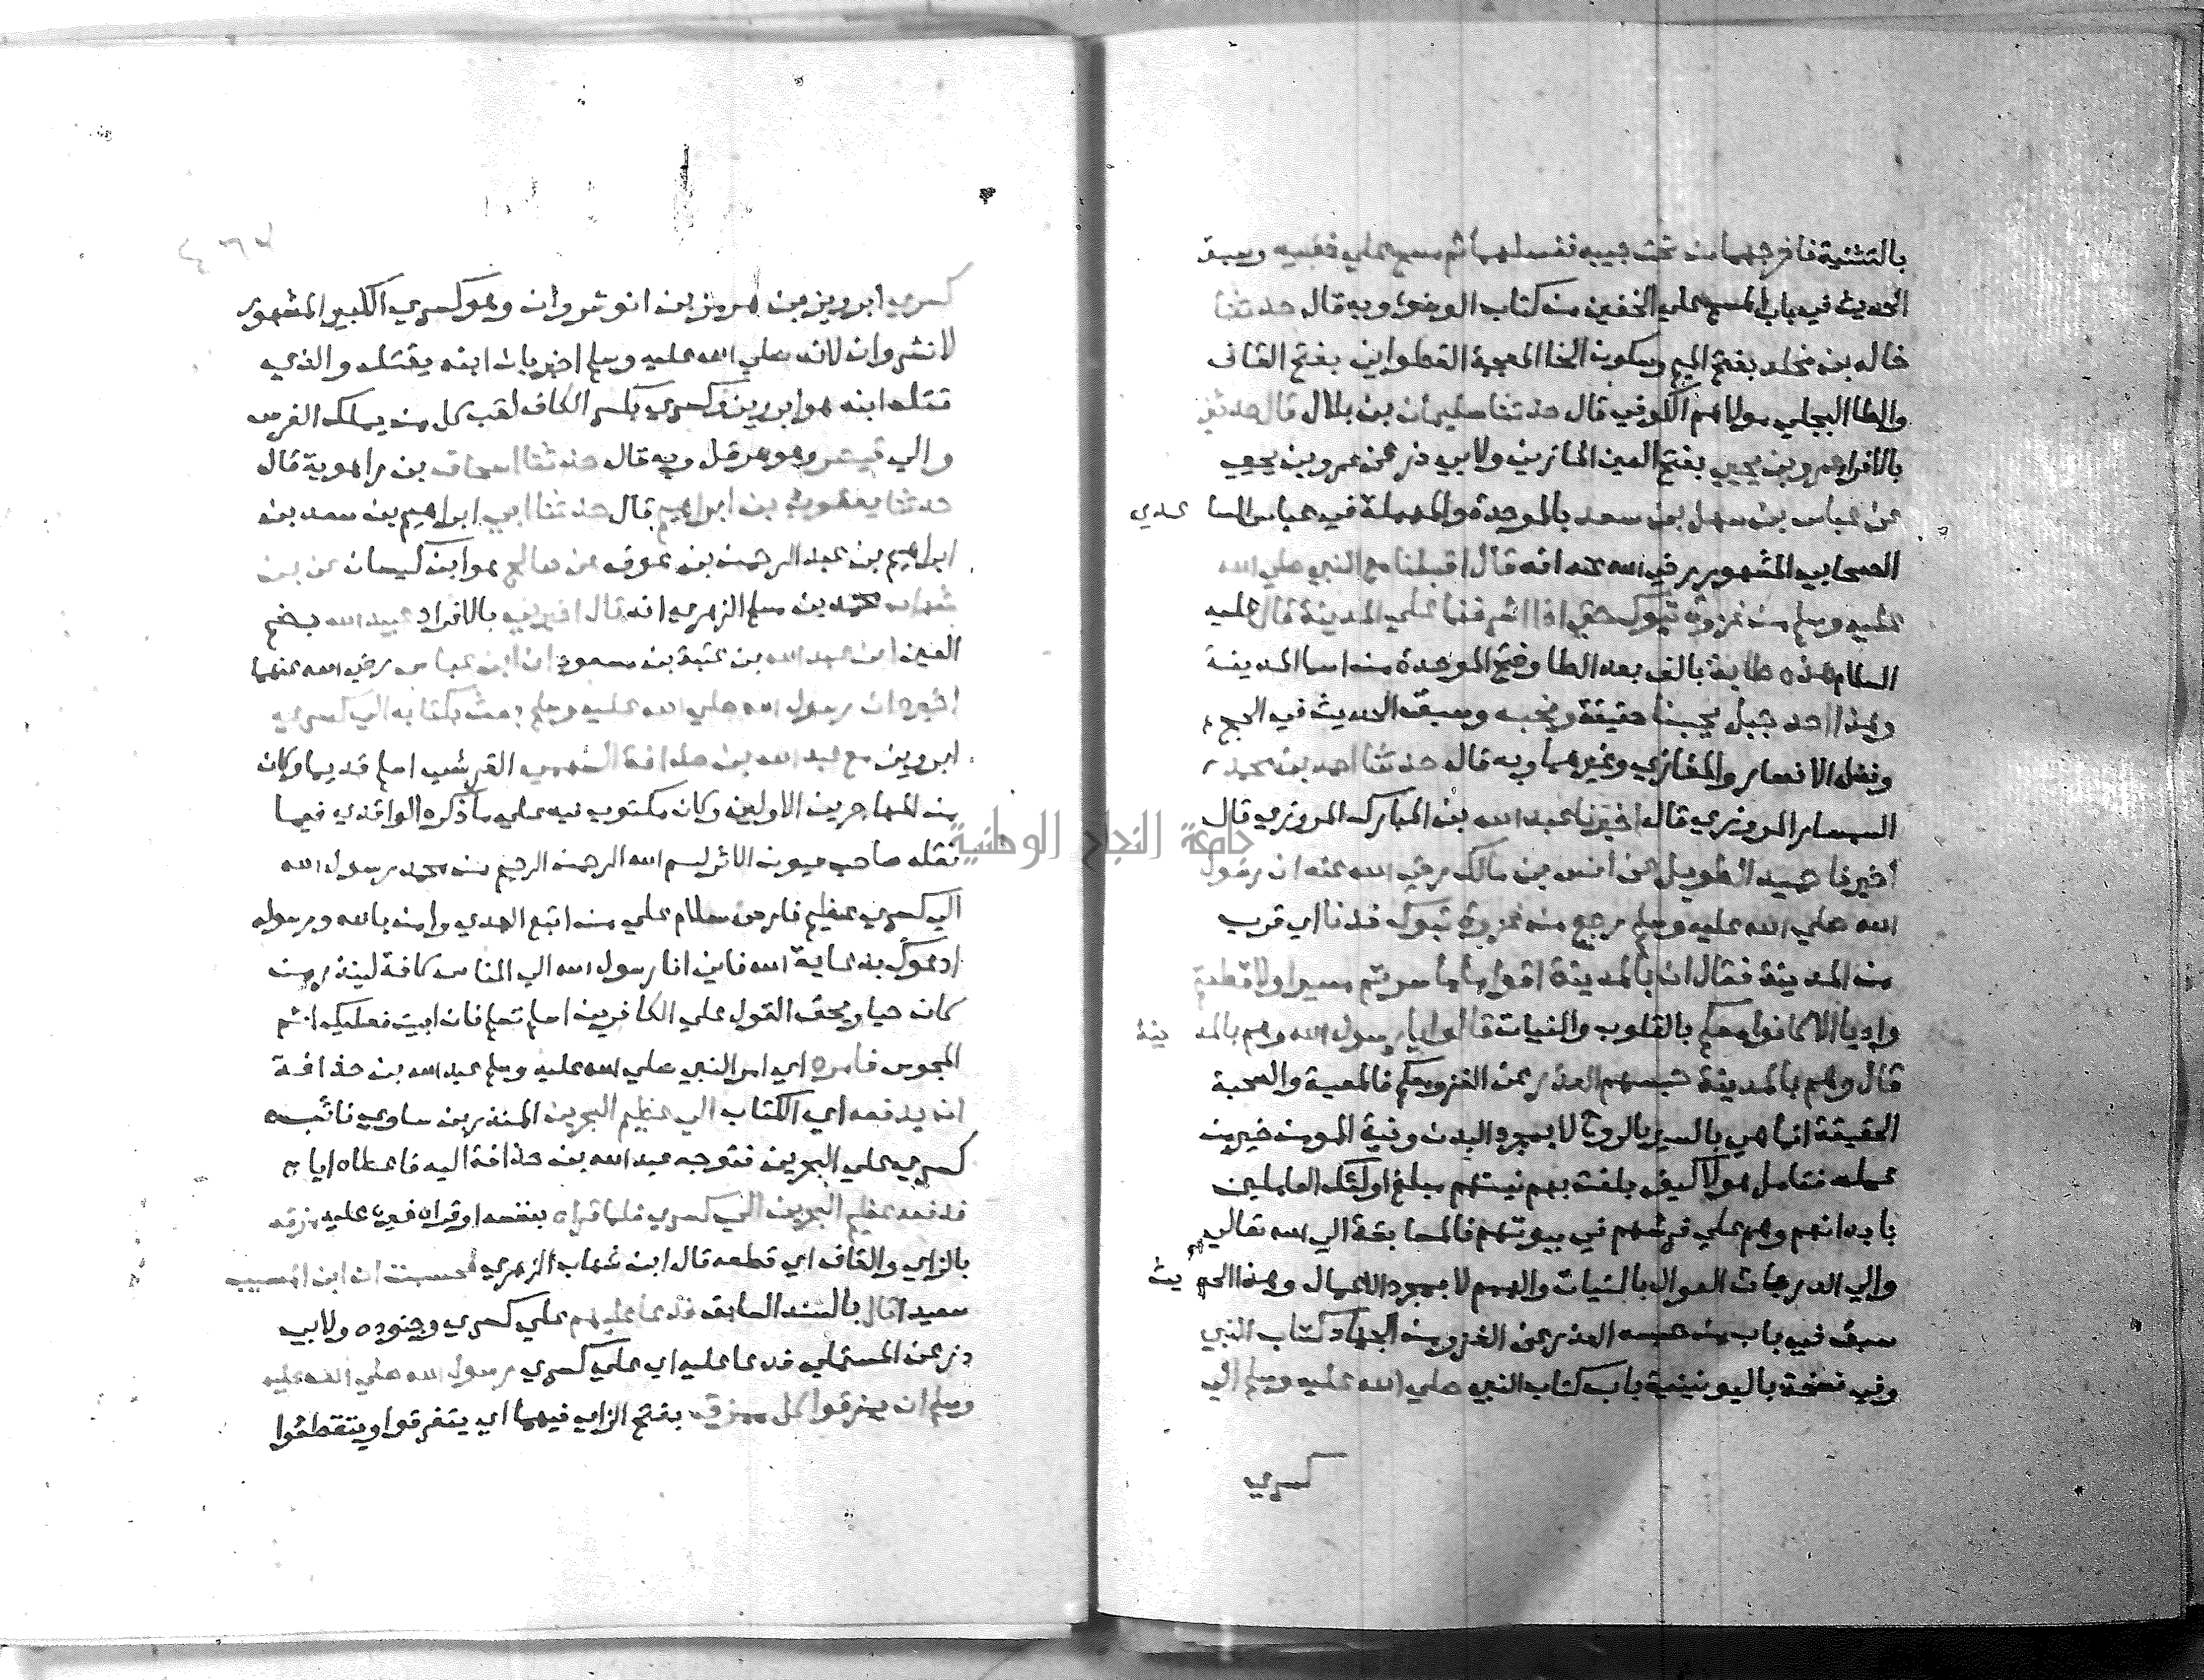 بالتثنية فاخرجهما من تحت جيبه فغسلهما ثم مسح علي خفيه وسبق
الحديث في باب المسح علي الخفين من كتاب الوضوء وبه قال حدثنا
خالد بن مخلد بفتح الميم وسكون الخا المعجمة القطواني بفتح القاف
والطا البجلي مولاهم الكوفي قال حدثنا سليمان بن بلال قال حدثني
بالافراد عمرو بن يحيي بفتح العين المازني ولابي ذر عن عمرو بن يحيي
عن عباس بن سهل بن سعد بالموحدة والمهملة في عباس الساعدي
الصحابي المشهور رضي الله عنه انه قال اقبلنا مع النبي صلي الله
عليه وسلم من غزوة تبوك حتي اذا اشرفنا علي المدينة قال عليه
السلام هذه طابة بالف بعد الطا وفتح الموحدة من اسما المدينة
وهذا احد جبل يحبنا حقيقة ونحبه وسبق الحديث في الحج
وفضل الانصار والمغازي وغيرهما وبه قال حدثنا احمد بن محمد
السمسار المروزي قال اخبرنا عبد الله بن المبارك المروزي قال
اخبرنا حميد الطويل عن انس بن مالك رضي الله عنه ان رسول
الله صلي الله عليه وسلم رجع من غزوة تبوك فدنا اي قرب
من المدينة فقال ان بالمدينة اقواما ما سرتم مسيرا ولا قطعتم
واديا الا كانوا معكم بالقلوب والنيات قالوا يا رسول الله وهم بالمدينة
قال وهم بالمدينة حبسهم العذر عن الغزو معكم فالمعية والصحبة
الحقيقة انما هي بالسير بالروح لا بمجرد البدن ونية المومن خير من
عمله فتامل هولا كيف بلغت بهم نيتهم مبلغ اولئك العاملين
بابدانهم وهم علي فرشهم في بيوتهم فالمسابقة الي الله تعالي
والي الدرجات العوال بالنيات والهمم لا بمجرد الاعمال وهذا الحديث
سبق في باب من حبسه العذر عن الغزو من الجهاد كتاب النبي
وفي نسخة باليونينية باب كتاب النبي صلي الله عليه وسلم الي
كسري
كسري ابرويز بن هرمز بن انوشروان وهو كسري الكبير المشهور
لانشروان لانه صلي الله عليه وسلم اخبر بان ابنه يقتله والذي
قتله ابنه هو ابرويز وكسري بكسر الكاف لقب كل من يملك الفرس
والي قيصر وهو هرقل وبه قال حدثنا اسحاق بن راهوية قال
حدثنا يعقوب بن ابراهيم قال حدثنا ابي ابراهيم بن سعد بن
ابراهيم بن عبد الرحمن بن عوف عن صالح هو ابن كيسان عن بن
شهاب محمد بن مسلم الزهري انه قال اخبرني بالافراد عبيد الله بضم
العين ابن عبد الله بن عتبة بن مسعود ان ابن عباس رضي الله عنهما
اخبره ان رسول الله صلي الله عليه وسلم بعث بكتابه الي كسري
ابرويز مع عبد الله بن حذافة السهمي القرشي اسلم قديما وكان
من المهاجرين الاولين وكان مكتوب فيه علي ما ذكره الواقدي فيما
نقله صاحب عيون الاثر بسم الله الرحمن الرحيم من محمد رسول الله
الي كسري عظيم فارس سلام علي من اتبع الهدي وامن بالله ورسوله
ادعوك بدعاية الله فاني انا رسول الله الي الناس كافة لينذر من
كان حيا ويحق القول علي الكافرين اسلم تسلم فان ابيت فعليك اثم
المجوس فامره اي امر النبي صلي الله عليه وسلم عبد الله بن حذافة
ان يدفعه اي الكتاب الي عظيم البحرين المنذر بن ساوي نائب
كسري علي البحرين فتوجه عبد الله بن حذافة اليه فاعطاه اياه
فدفعه عظيم البحرين الي كسري فلما قراه بنفسه او قراه غيره عليه مزقه
بالزاي والقاف اي قطعه قال ابن شهاب الزهري فحسبت ان ابن المسيب
سعيدا قال بالسند السابق فدعا عليهم علي كسري وجنوده ولابي
ذر عن المستملي فدعا عليه اي علي كسري رسول الله صلي الله عليه
وسلم ان يمزقوا كل ممزق بفتح الزاي فيهما اي يتفرقوا ويتقطعوا
جامعة النجاح الوطنية